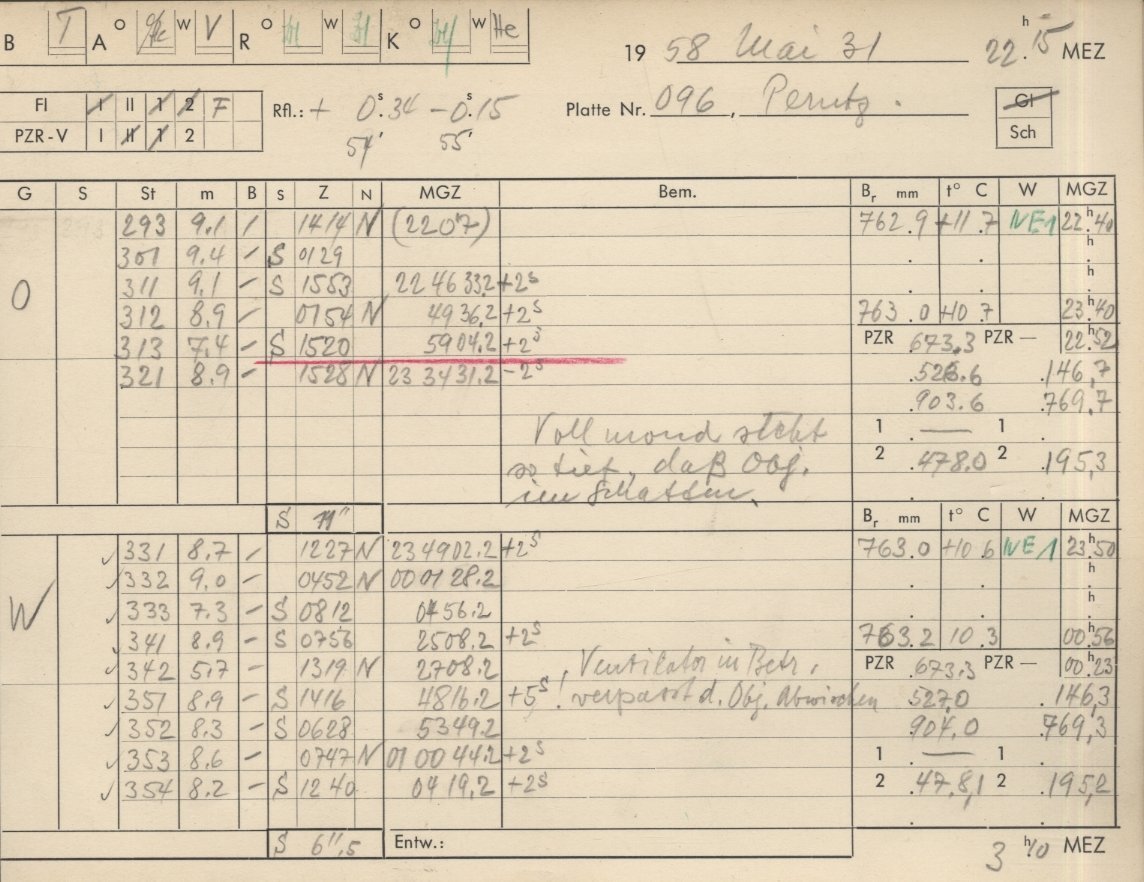 B T A O W V R O W K O W He
19 58 Mai 31 22 h 15 MEZ
Fl I II 1 2 F
PZR-V I II 1 2
Rfl.: + 0 s .34 – 0 s .15
54' 55'
Platte Nr. 096, Perutz.
Gl
Sch
G S St m B S Z N MGZ Bem. Br mm t° C W MGZ
293 9.1 / 1414 N (2207) 762.9 +11.7 NE1 22 h 40
301 9.4 – S 0129
311 9.1 – S 1553 22 46 33.2 +2 s
O
312 8.9 – 0754 N 49 36.2 +2 s 763.0 +10.7 23 h 40
313 7.4 – S 1520 59 04.2 +2 s PZR 673.3 PZR – 22 h 52
321 8.9 – 1528 N 23 34 31.2 –2 s .526.6 .146,7
.903.6 .769,7
Vollmond steht 1 . — 1 .
so tief, daß Obj. 2 .478.0 2 .195,3
im Schatten.
S 11" Br mm t° C W MGZ
331 8.7 – 1227 N 23 49 02.2 +2 s 763.0 +10.6 NE1 23 h 50
332 9.0 – 0452 N 00 01 28.2
W 333 7.3 – S 0812 04 56.2
341 8.9 – S 0756 25 08.2 +2 s 763.2 10.3 00 h 56
342 5.7 1319 N 27 08.2 Ventilator in Betr. PZR .673.3 PZR – 00 h 23
351 8.9 – S 1416 48 16.2 +5 s ! verpasst d. Obj. Abwischen .527.0 .146,3
352 8.3 – S 0628 53 49.2 .904.0 .769,3
353 8.6 – 0747 N 01 00 44.2 +2 s 1 . — 1 .
354 8.2 – S 1240 04 19.2 +2 s 2 .478,1 2 .195,2
S 6",5 Entw.: 3 h 10 MEZ